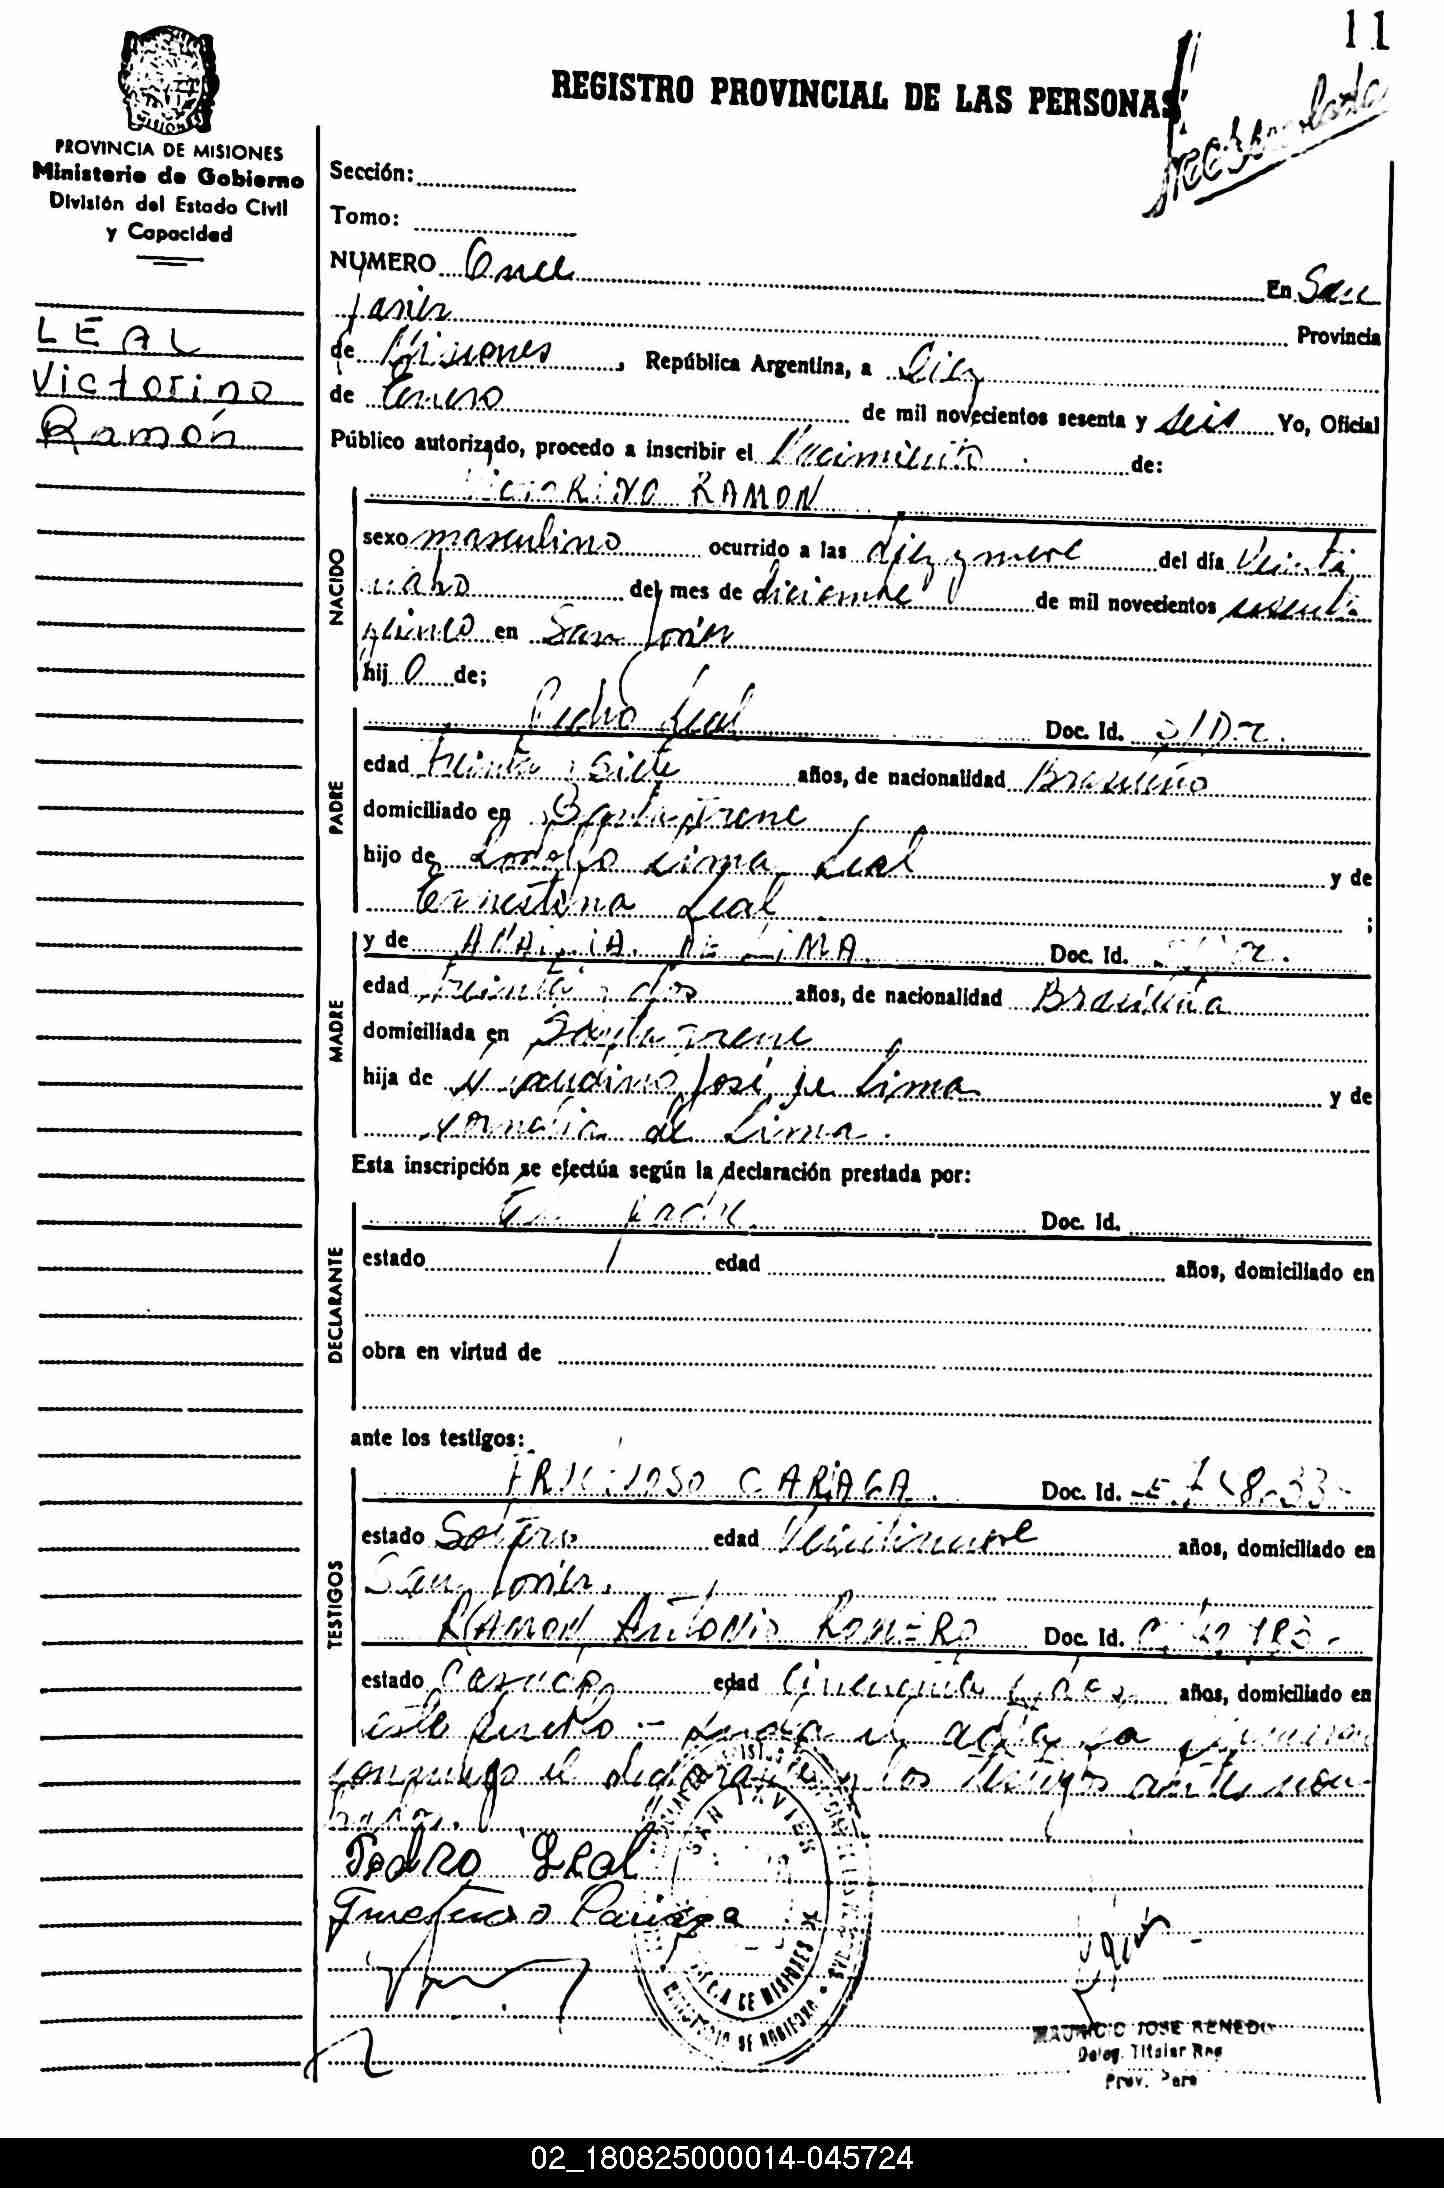 11
REGISTRO PROVINCIAL DE LAS PERSONAS
PROVINCIA DE MISIONES
Ministerio de Gobierno
División del Estado Civil
y Capacidad
LEAL
Victorino
Ramón
Sección:
Tomo:
NUMERO Once En San
Javier Provincia
de Misiones, República Argentina, a Diez
de Enero de mil novecientos sesenta y seis Yo, Oficial
Público autorizado, procedo a inscribir el Nacimiento de:
VICTORINO RAMON
NACIDO
sexo masculino ocurrido a las diez y nueve del día Veinti
ocho del mes de diciembre de mil novecientos sesenta
y cinco en San Javier
hijo de;
PADRE
Pedro Leal Doc. Id.
edad treinta y siete años, de nacionalidad Brasileño
domiciliado en Santa Irene
hijo de Rodolfo Lima Leal y de
Ernestina Leal ;
MADRE
y de DE LIMA Doc. Id.
edad treinta y dos años, de nacionalidad Brasileña
domiciliada en Santa Irene
hija de José de Lima y de
de Lima.
Esta inscripción se efectúa según la declaración prestada por:
DECLARANTE
El padre Doc. Id.
estado edad años, domiciliado en
obra en virtud de
ante los testigos:
TESTIGOS
FRUCTUOSO CARIAGA. Doc. Id.
estado Soltero edad Veintinueve años, domiciliado en
San Javier.
RAMON ANTONIO ROMERO Doc. Id.
estado Casado edad Cincuenta y dos años, domiciliado en
este pueblo.- Leída el acta, la firman
conmigo el declarante y los testigos antes nom-
brados.
Pedro Leal
Fructuoso Cariaga
SAN JAVIER
PCIA DE MISIONES
MINISTERIO DE GOBIERNO
MAURICIO JOSE RENEDO
Deleg. Titular Reg
Prov. Pers
02_180825000014-045724